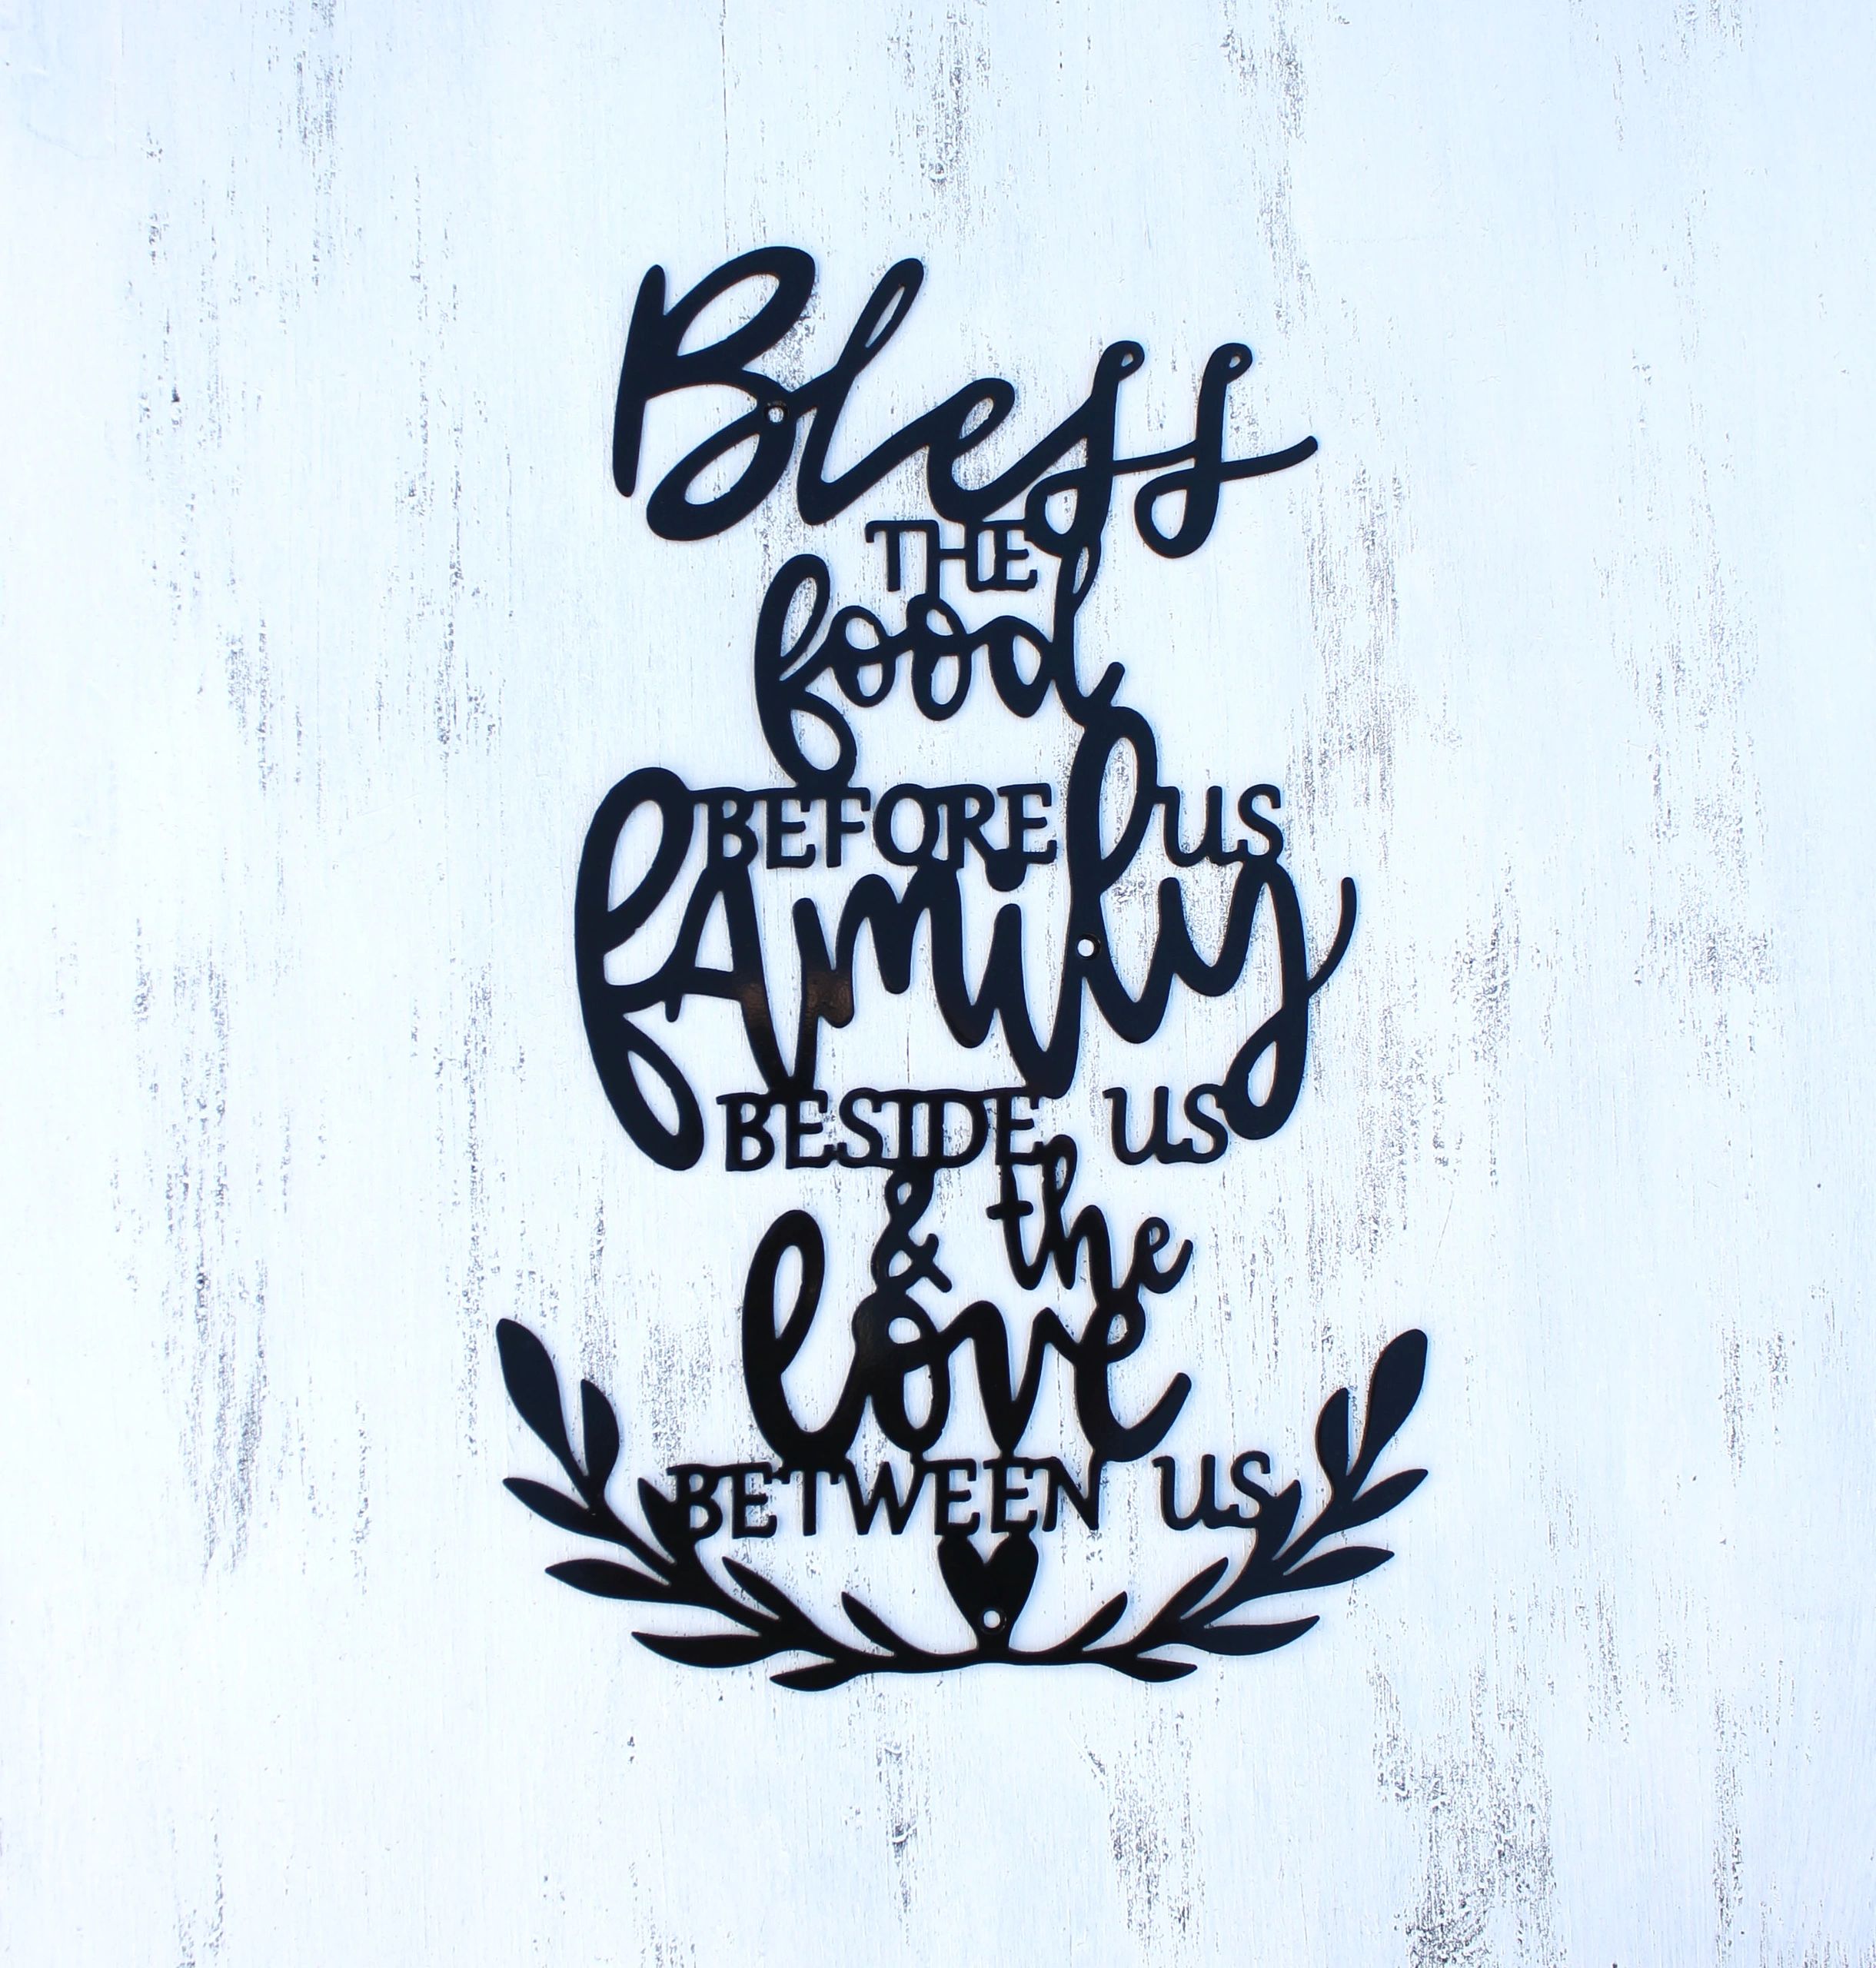 Bless
THE
food
BEFORE us
fAmily
BESIDE us
& the
love
BETWEEN us